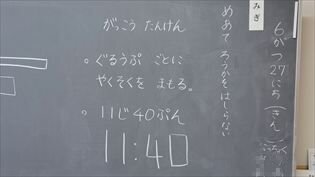 みぎ
6がつ27にち(きん)
めあて ろうかをはしらない
がっこう たんけん
◦ ぐるうぷ ごとに
やくそくを まもる。
◦ 11じ40ぷん
11:40